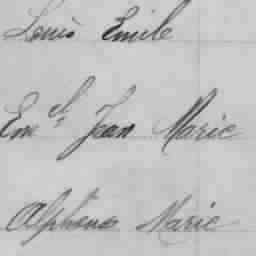 Louis Emile
Em el Jean Marie
Alphonse Marie